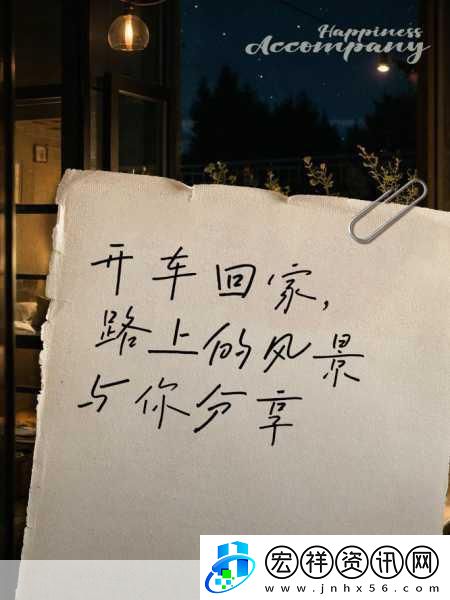 Happiness
Accompany
开车回家,
路上的风景
与你分享
宏祥资讯网
www.jnhx56.com